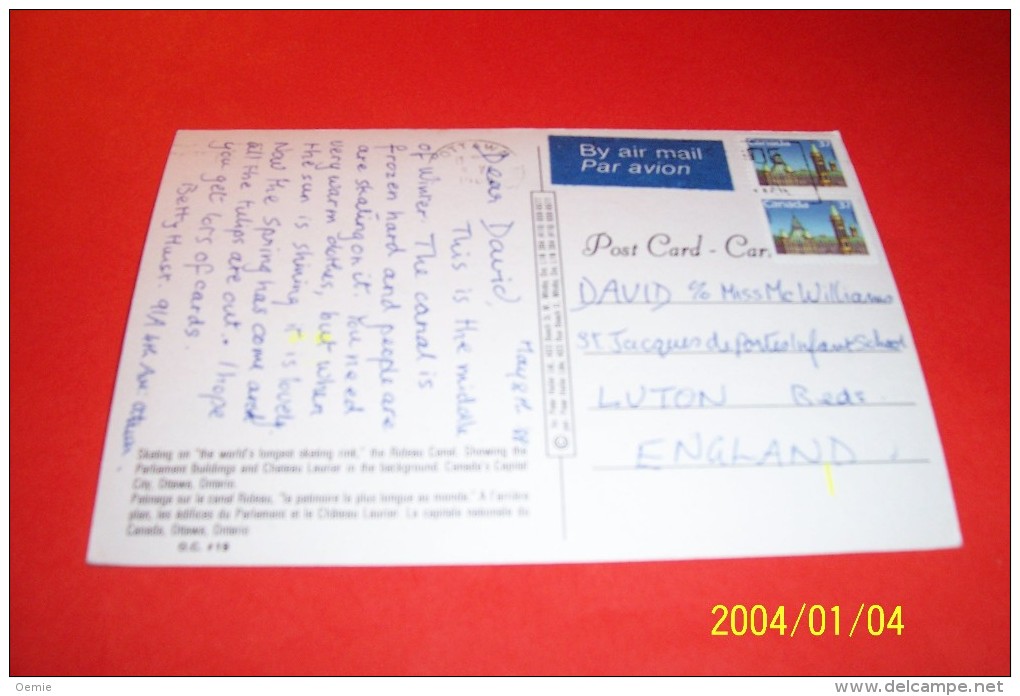 By air mail
Par avion
Canada 37
Canada 37
Post Card - Car
DAVID c/o Miss McWilliams
St Jacques de Portes Infant School
LUTON Beds.
ENGLAND.
May 8th
Dear David,
This is the middle
of Winter. The canal is
frozen hard and people are
are skating on it. You need
very warm clothes, but when
the sun is shining it is lovely.
Now the spring has come and
all the tulips are out. I hope
you get lots of cards.
Betty
91A 4th Ave. Ottawa.
Skating on "the world's longest skating rink," the Rideau Canal. Showing the
Parliament Buildings and Chateau Laurier in the background. Canada's Capital
City, Ottawa, Ontario.
Patinage sur le canal Rideau, "la patinoire la plus longue au monde." A l'arrière
plan, les édifices du Parlement et le Château Laurier. La capitale nationale du
Canada, Ottawa, Ontario
O.C. #19
2004/01/04
Oemie
www.delcampe.net